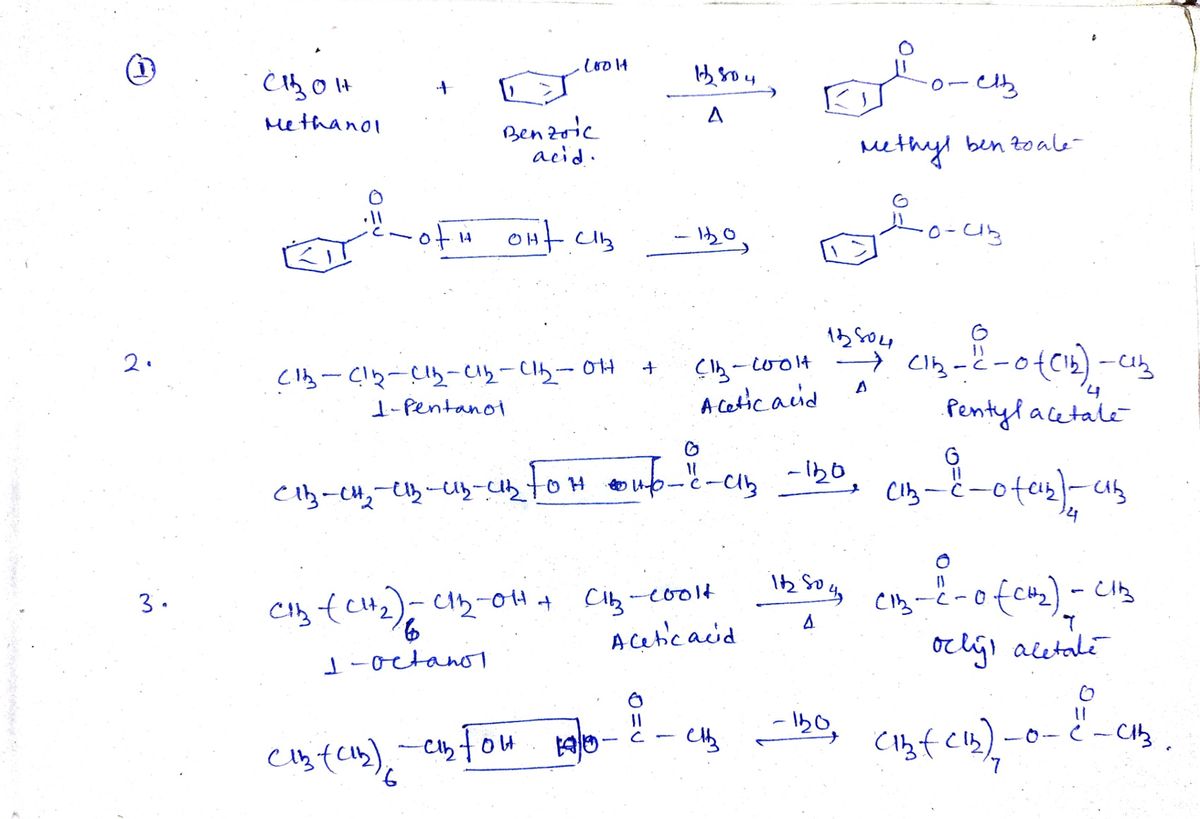 ① CH3OH + COOH H2SO4 Δ O O-CH3
Methanol Benzoic acid. Methyl benzoate
O C-O H OH CH3 -H2O O O-CH3
2. CH3-CH2-CH2-CH2-CH2-OH + CH3-COOH H2SO4 Δ CH3-C-O(CH2)4-CH3 O
1-Pentanol Acetic acid Pentyl acetate
CH3-CH2-CH2-CH2-CH2 OH H O-C-CH3 O -H2O CH3-C-O(CH2)4-CH3 O
3. CH3(CH2)6-CH2-OH + CH3-COOH H2SO4 Δ CH3-C-O(CH2)7-CH3 O
1-octanol Acetic acid octyl acetate
CH3(CH2)6-CH2 OH O-C-CH3 O -H2O CH3(CH2)7-O-C-CH3. O